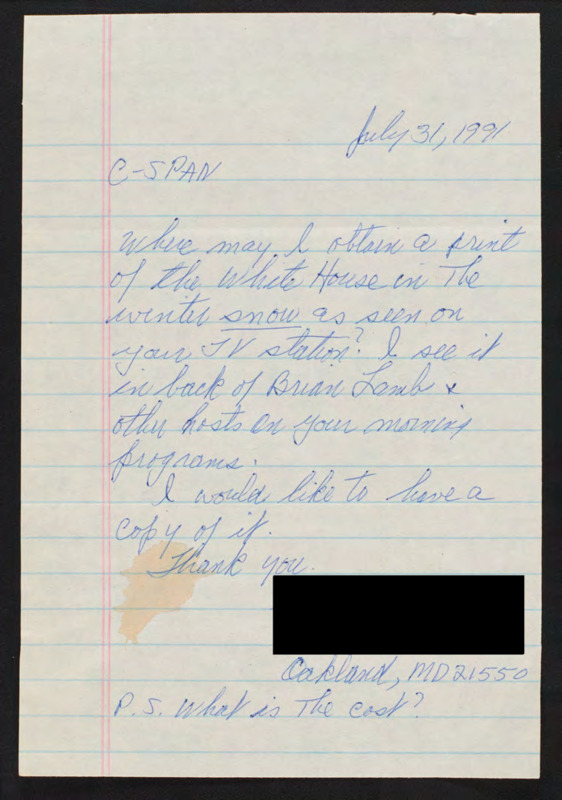 July 31, 1991
C-SPAN
Where may I obtain a print
of the White House in The
winter snow as seen on
your TV station? I see it
in back of Brian Lamb &
other hosts on your morning
programs.
I would like to have a
copy of it.
Thank you.
Oakland, MD 21550
P.S. What is The cost?